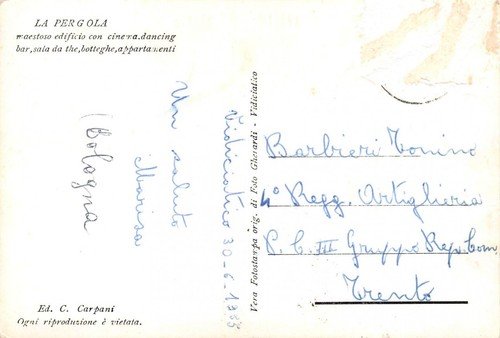 LA PERGOLA
maestoso edificio con cinema, dancing
bar, sala da the, botteghe, appartamenti
Vidiciatico 30-6-1963
Un saluto
Marisa
(Bologna
Vera Fotostampa orig. di Foto Gherardi - Vidiciatico
Barbieri Tonino
4° Regg. Artiglieria
P. C. III Gruppo Rep. Com
Trento
Ed. C. Carpani
Ogni riproduzione è vietata.